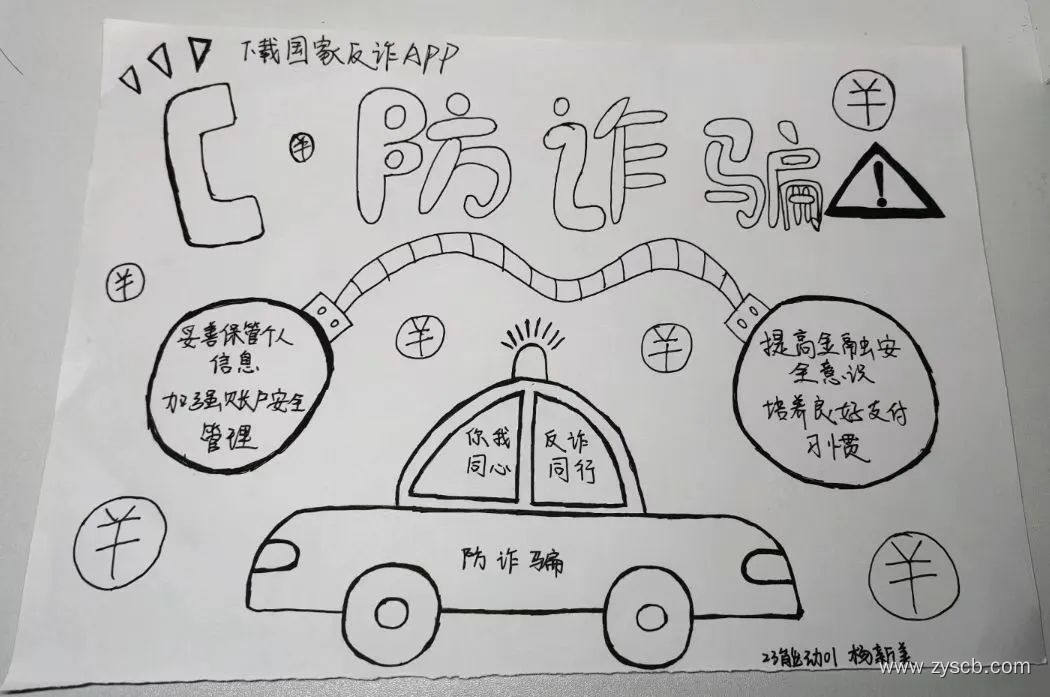 下载国家反诈APP
防诈骗
妥善保管个人
信息
加强账户安全
管理
提高金融安
全意识
培养良好支付
习惯
你我
同心
反诈
同行
防诈骗
23能动01 杨新美
www.zyscb.com